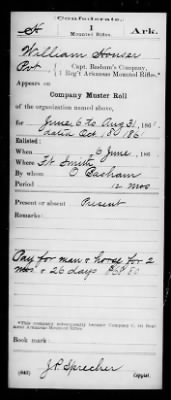 Confederate.
H 1 Ark.
Mounted Rifles.
William Houser
Pvt { Capt. Basham's Company,
1 Reg't Arkansas Mounted Rifles.*
Appears on
Company Muster Roll
of the organization named above,
for June 6 to Aug 31, 1861
dated Oct 8, 1861
Enlisted:
When 6 June, 186
Where Ft Smith
By whom O Basham
Period 12 mos
Present or absent Present
Remarks:
Pay for man & horse for 2
mos & 26 days
*This company subsequently became Company
Book mark:
J.P. Sprecher
(642) Copyist.